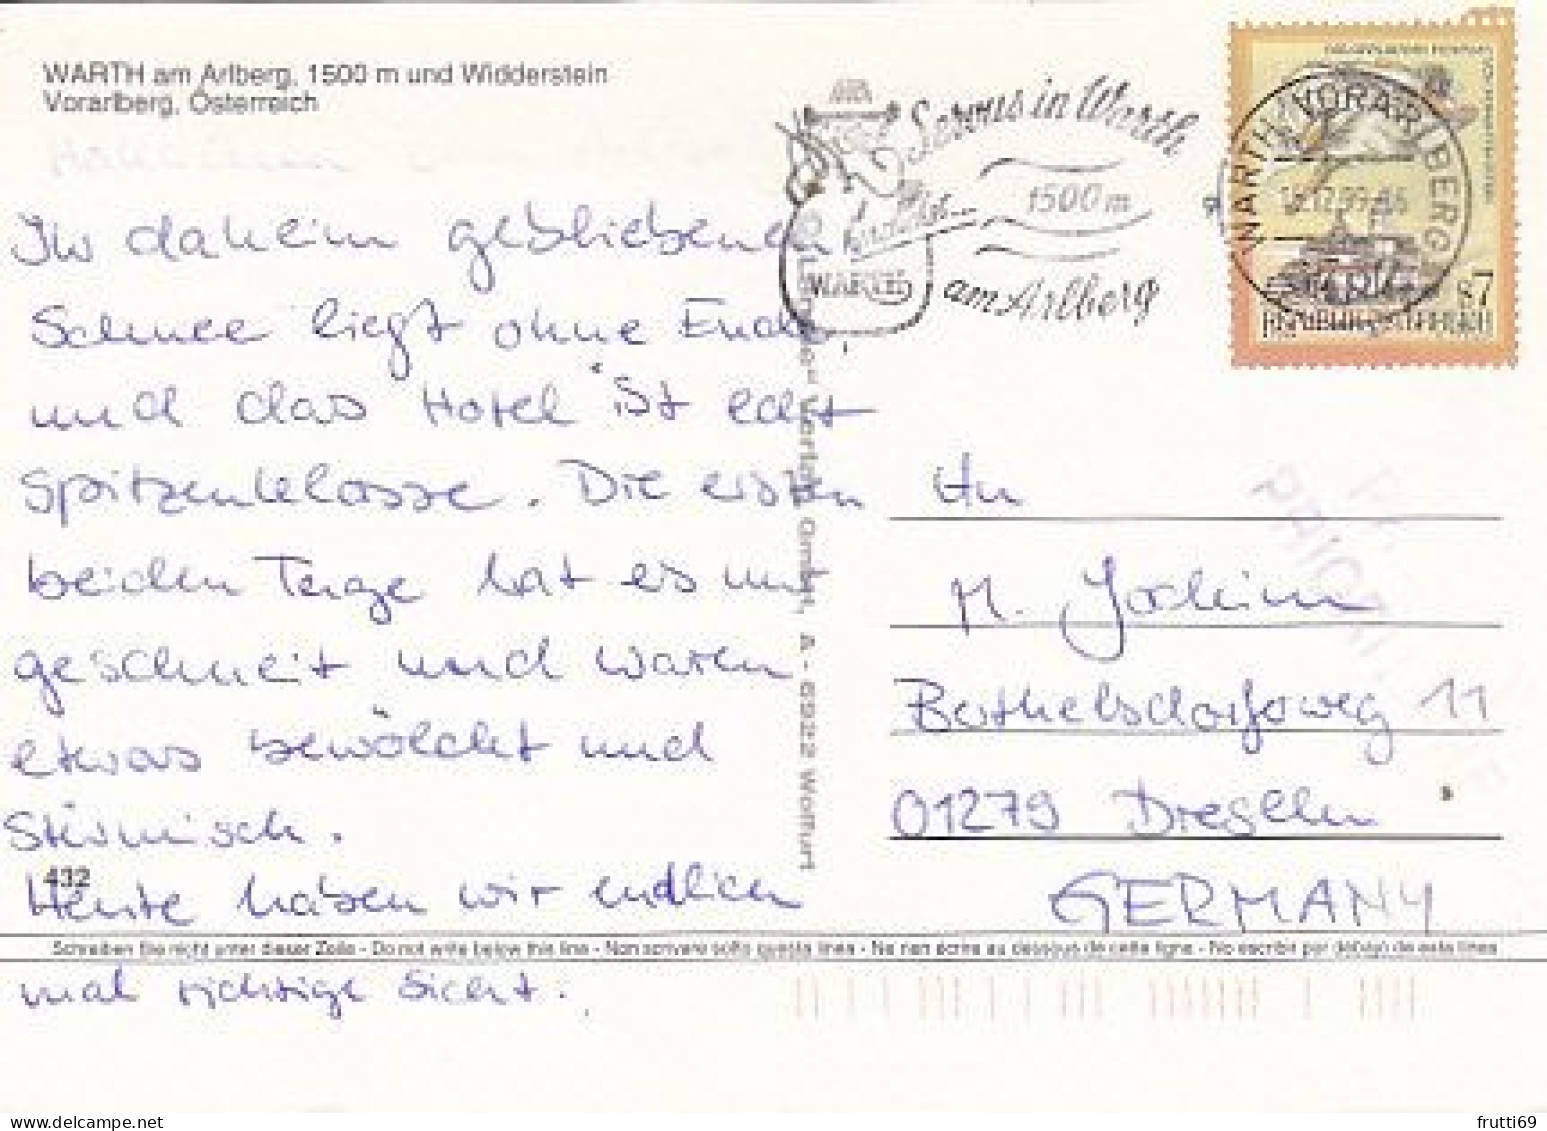 WARTH am Arlberg, 1500 m und Widderstein
Vorarlberg, Österreich
Servus in Warth
1500 m
WARTH
am Arlberg
WARTH, VORARLBERG
S 7
REPUBLIK ÖSTERREICH
Ihr daheim gebliebenen
Schnee liegt ohne Ende,
und das Hotel ist echt
Spitzenklasse. Die ersten
beiden Tage hat es nur
geschneit und waren
etwas bewölkt und
Stürmisch.
Heute haben wir endlich
mal richtige Sicht.
432
Verlag GmbH, A - 6922 Wolfurt
An
M. Jochim
Barthelsdorfweg 11
01279 Dresden
GERMANY
PRIORITAIRE
Schreiben Sie nicht unter dieser Zeile - Do not write below this line - Non scrivere sotto questa linea - Ne rien écrire au dessous de cette ligne - No escribir por debajo de esta línea
frutti69